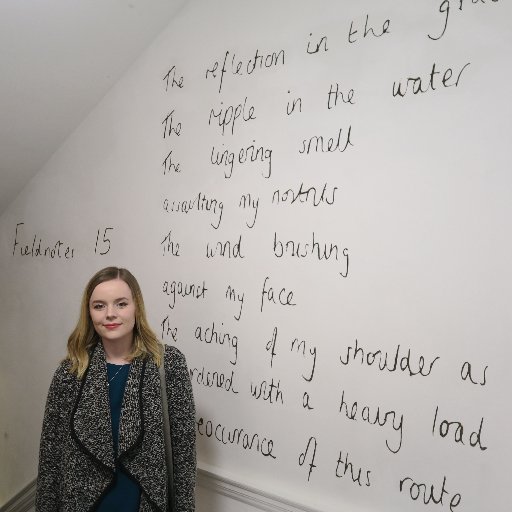 The reflection in the
The ripple in the water
The lingering smell
assaulting my nostrils
Fieldnotes 15
The wind brushing
against my face
The aching of my shoulder as
rdened with a heavy load
eoccurrance of this route